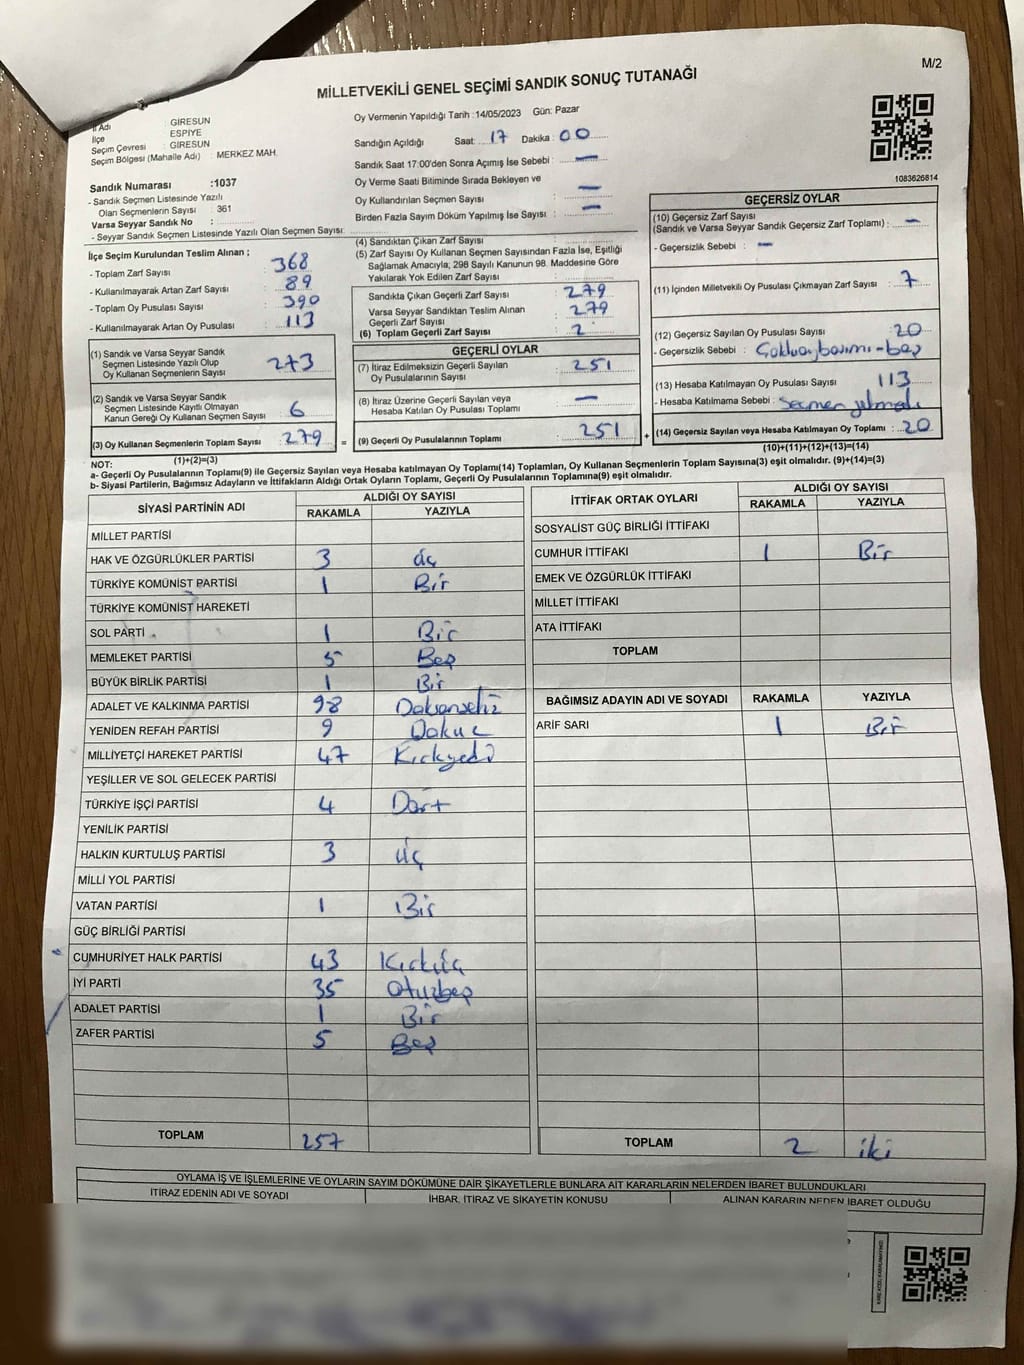 M/2
MİLLETVEKİLİ GENEL SEÇİMİ SANDIK SONUÇ TUTANAĞI
İl Adı : GİRESUN
İlçe : ESPİYE
Seçim Çevresi : GİRESUN
Seçim Bölgesi (Mahalle Adı) : MERKEZ MAH.
Sandık Numarası :1037
- Sandık Seçmen Listesinde Yazılı
Olan Seçmenlerin Sayısı : 361
Varsa Seyyar Sandık No :
- Seyyar Sandık Seçmen Listesinde Yazılı Olan Seçmen Sayısı:
Oy Vermenin Yapıldığı Tarih :14/05/2023 Gün: Pazar
Sandığın Açıldığı Saat: 17 Dakika : 00
Sandık Saat 17:00'den Sonra Açımış İse Sebebi : —
Oy Verme Saati Bitiminde Sırada Bekleyen ve
Oy Kullandırılan Seçmen Sayısı : —
Birden Fazla Sayım Döküm Yapılmış İse Sayısı : —
1083626814
İlçe Seçim Kurulundan Teslim Alınan ;
- Toplam Zarf Sayısı : 368
- Kullanılmayarak Artan Zarf Sayısı : 89
- Toplam Oy Pusulası Sayısı : 390
- Kullanılmayarak Artan Oy Pusulası : 113
(1) Sandık ve Varsa Seyyar Sandık
Seçmen Listesinde Yazılı Olup
Oy Kullanan Seçmenlerin Sayısı : 273
(2) Sandık ve Varsa Seyyar Sandık
Seçmen Listesinde Kayıtlı Olmayan
Kanun Gereği Oy Kullanan Seçmen Sayısı : 6
(3) Oy Kullanan Seçmenlerin Toplam Sayısı : 279
(1)+(2)=(3)
(4) Sandıktan Çıkan Zarf Sayısı :
(5) Zarf Sayısı Oy Kullanan Seçmen Sayısından Fazla İse, Eşitliği
Sağlamak Amacıyla, 298 Sayılı Kanunun 98. Maddesine Göre
Yakılarak Yok Edilen Zarf Sayısı :
Sandıkta Çıkan Geçerli Zarf Sayısı : 279
Varsa Seyyar Sandıktan Teslim Alınan
Geçerli Zarf Sayısı : 279
(6) Toplam Geçerli Zarf Sayısı : 2
GEÇERLİ OYLAR
(7) İtiraz Edilmeksizin Geçerli Sayılan
Oy Pusulalarının Sayısı : 251
(8) İtiraz Üzerine Geçerli Sayılan veya
Hesaba Katılan Oy Pusulası Toplamı : —
= (9) Geçerli Oy Pusulalarının Toplamı : 251 +
GEÇERSİZ OYLAR
(10) Geçersiz Zarf Sayısı
(Sandık ve Varsa Seyyar Sandık Geçersiz Zarf Toplamı) : —
- Geçersizlik Sebebi : —
(11) İçinden Milletvekili Oy Pusulası Çıkmayan Zarf Sayısı : 7
(12) Geçersiz Sayılan Oy Pusulası Sayısı : 20
- Geçersizlik Sebebi :
(13) Hesaba Katılmayan Oy Pusulası Sayısı : 113
- Hesaba Katılmama Sebebi : seçmen
(14) Geçersiz Sayılan veya Hesaba Katılmayan Oy Toplamı : 20
(10)+(11)+(12)+(13)=(14)
NOT:
a- Geçerli Oy Pusulalarının Toplamı(9) ile Geçersiz Sayılan veya Hesaba katılmayan Oy Toplamı(14) Toplamları, Oy Kullanan Seçmenlerin Toplam Sayısına(3) eşit olmalıdır. (9)+(14)=(3)
b- Siyasi Partilerin, Bağımsız Adayların ve İttifakların Aldığı Ortak Oyların Toplamı, Geçerli Oy Pusulalarının Toplamına(9) eşit olmalıdır.
SİYASİ PARTİNİN ADI ALDIĞI OY SAYISI
RAKAMLA YAZIYLA
MİLLET PARTİSİ
HAK VE ÖZGÜRLÜKLER PARTİSİ 3 üç
TÜRKİYE KOMÜNİST PARTİSİ 1 Bir
TÜRKİYE KOMÜNİST HAREKETİ
SOL PARTİ 1 Bir
MEMLEKET PARTİSİ 5 Beş
BÜYÜK BİRLİK PARTİSİ 1 Bir
ADALET VE KALKINMA PARTİSİ 98 Doksansekiz
YENİDEN REFAH PARTİSİ 9 Dokuz
MİLLİYETÇİ HAREKET PARTİSİ 47 Kırkyedi
YEŞİLLER VE SOL GELECEK PARTİSİ
TÜRKİYE İŞÇİ PARTİSİ 4 Dört
YENİLİK PARTİSİ
HALKIN KURTULUŞ PARTİSİ 3 üç
MİLLİ YOL PARTİSİ
VATAN PARTİSİ 1 Bir
GÜÇ BİRLİĞİ PARTİSİ
CUMHURİYET HALK PARTİSİ 43 Kırküç
İYİ PARTİ 35 otuzbeş
ADALET PARTİSİ 1 Bir
ZAFER PARTİSİ 5 Beş
TOPLAM 257
İTTİFAK ORTAK OYLARI ALDIĞI OY SAYISI
RAKAMLA YAZIYLA
SOSYALİST GÜÇ BİRLİĞİ İTTİFAKI
CUMHUR İTTİFAKI 1 Bir
EMEK VE ÖZGÜRLÜK İTTİFAKI
MİLLET İTTİFAKI
ATA İTTİFAKI
TOPLAM
BAĞIMSIZ ADAYIN ADI VE SOYADI RAKAMLA YAZIYLA
ARİF SARI 1 Bir
TOPLAM 2 iki
OYLAMA İŞ VE İŞLEMLERİNE VE OYLARIN SAYIM DÖKÜMÜNE DAİR ŞİKAYETLERLE BUNLARA AİT KARARLARIN NELERDEN İBARET BULUNDUKLARI
İTİRAZ EDENİN ADI VE SOYADI İHBAR, İTİRAZ VE ŞİKAYETİN KONUSU ALINAN KARARIN NEDEN İBARET OLDUĞU